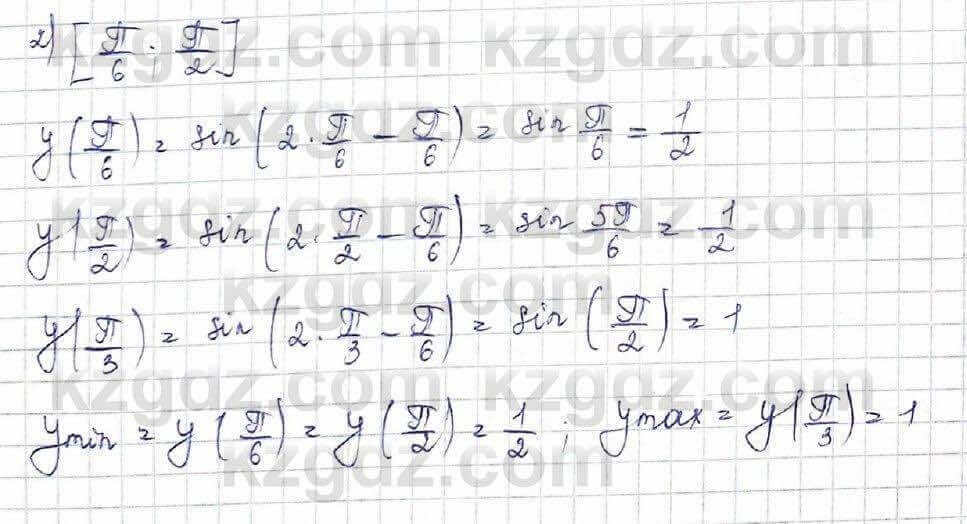 2) [π/6 ; π/2]
y(π/6) = sin(2·π/6 − π/6) = sin π/6 = 1/2
y(π/2) = sin(2·π/2 − π/6) = sin 5π/6 = 1/2
y(π/3) = sin(2·π/3 − π/6) = sin(π/2) = 1
ymin = y(π/6) = y(π/2) = 1/2 ; ymax = y(π/3) = 1
kzgdz.com kzgdz.com
kzgdz.com
kzgdz.com kzgdz.com
kzgdz.com
kzgdz.com kzgdz.com
kzgdz.com